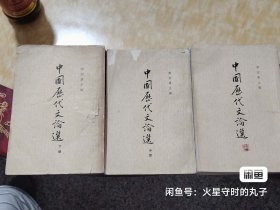 中國歷代文論選
下冊
中國歷代文論選
中冊
中國歷代文論選
闲鱼
闲鱼号：火星守时的丸子